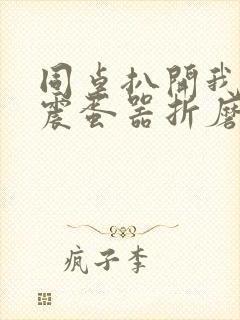 同桌扒開我
震蛋器折磨
疯子李